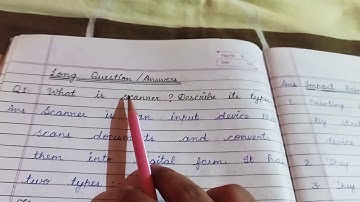 Page No.
Date
Long Question/Answers
Q1. What is scanner? Describe its types
Ans Scanner is an input device
scans documents and converts
them into digital form. It has
two types:-
Ans Impact
1. Printing
by
2. They
3. They